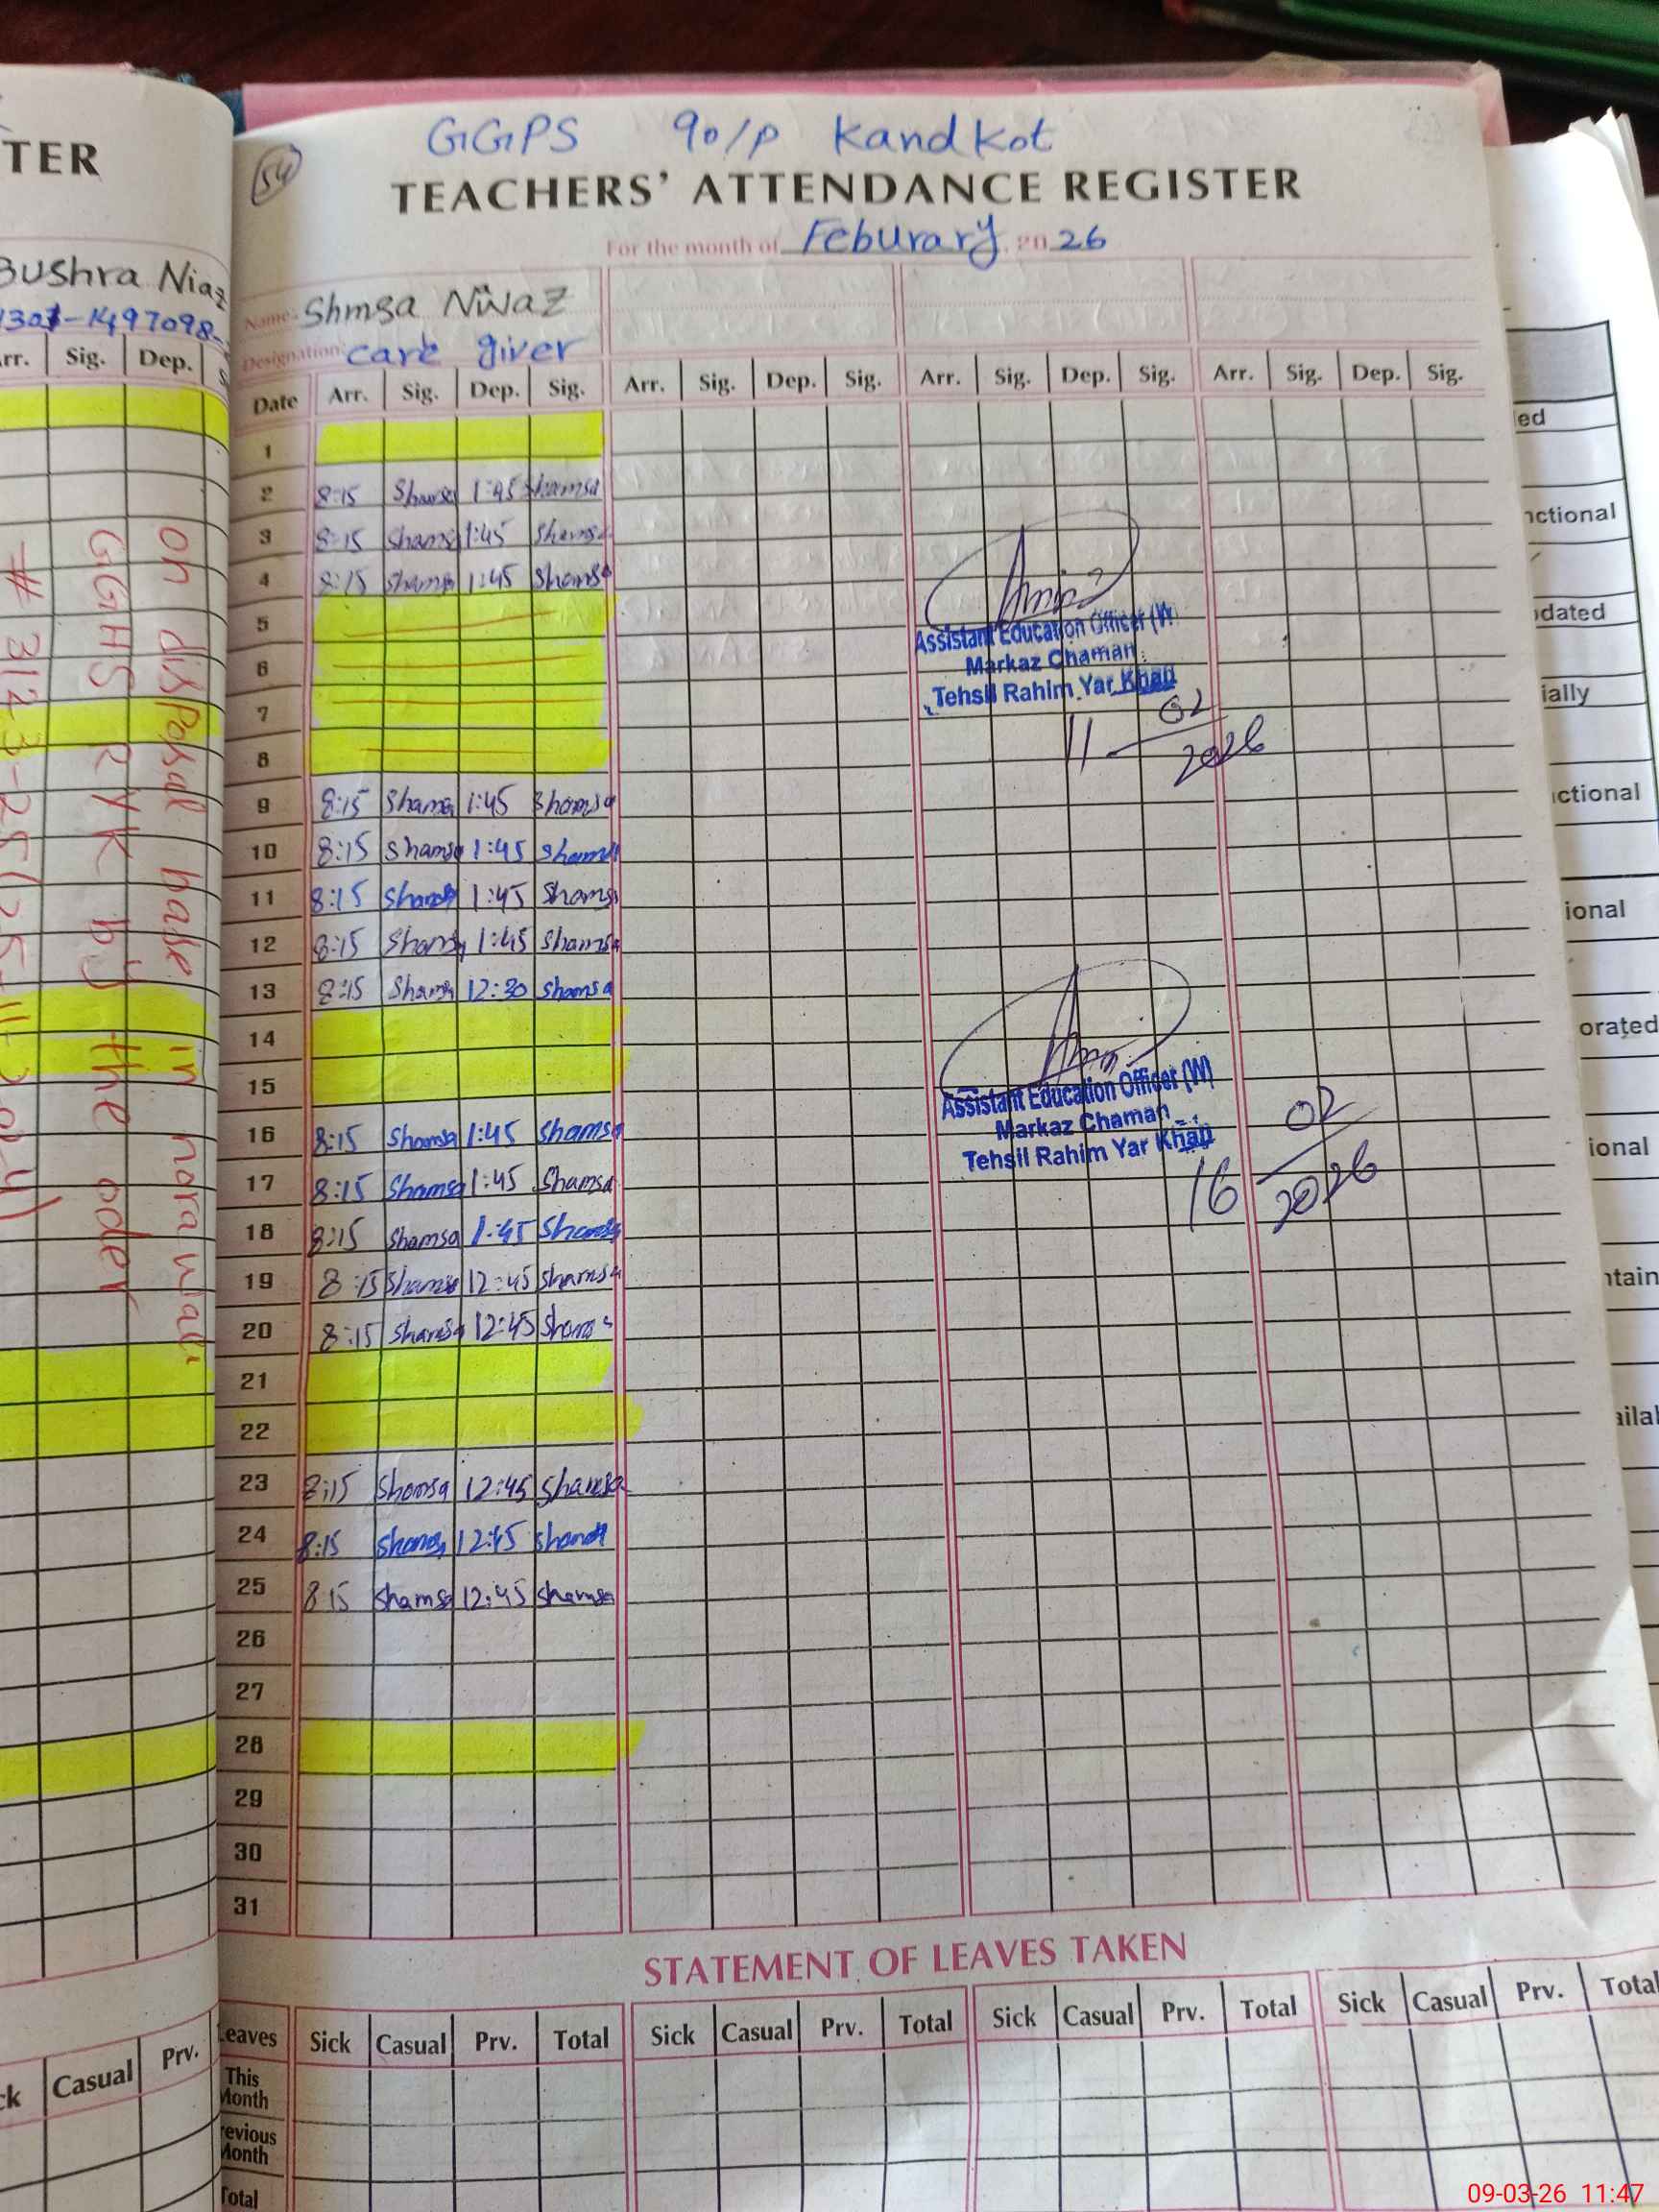 TER
Bushra Niaz
Arr. Sig. Dep.
on disposal base in norawali
GGHS RYK by the oder
Casual Prv.
54
GGPS 90/P Kandkot
TEACHERS' ATTENDANCE REGISTER
For the month of Feburary 2026
Name: Shmsa Niwaz
Designation: care giver
Date Arr. Sig. Dep. Sig. Arr. Sig. Dep. Sig. Arr. Sig. Dep. Sig. Arr. Sig. Dep. Sig.
1
2 8:15 Shamsa 1:45 Shamsa
3 8:15 Shamsa 1:45 Shamsa
4 8:15 Shamsa 1:45 Shamsa
5
6
7
8
9 8:15 Shamsa 1:45 Shamsa
10 8:15 Shamsa 1:45 Shamsa
11 8:15 Shamsa 1:45 Shamsa
12 8:15 Shamsa 1:45 Shamsa
13 8:15 Shamsa 12:30 Shamsa
14
15
16 8:15 Shamsa 1:45 Shamsa
17 8:15 Shamsa 1:45 Shamsa
18 8:15 Shamsa 1:45 Shamsa
19 8:15 Shamsa 12:45 Shamsa
20 8:15 Shamsa 12:45 Shamsa
21
22
23 8:15 Shamsa 12:45 Shamsa
24 8:15 Shamsa 12:45 Shamsa
25 8:15 Shamsa 12:45 Shamsa
26
27
28
29
30
31
Assistant Education Officer (W)
Markaz Chaman
Tehsil Rahim Yar Khan
11 02/2026
Assistant Education Officer (W)
Markaz Chaman
Tehsil Rahim Yar Khan
16 02/2026
STATEMENT OF LEAVES TAKEN
Leaves Sick Casual Prv. Total Sick Casual Prv. Total Sick Casual Prv. Total Sick Casual Prv. Total
This Month
Previous Month
Total
ed
nctional
dated
ially
ctional
ional
orated
ional
ntain
ailal
09-03-26 11:47